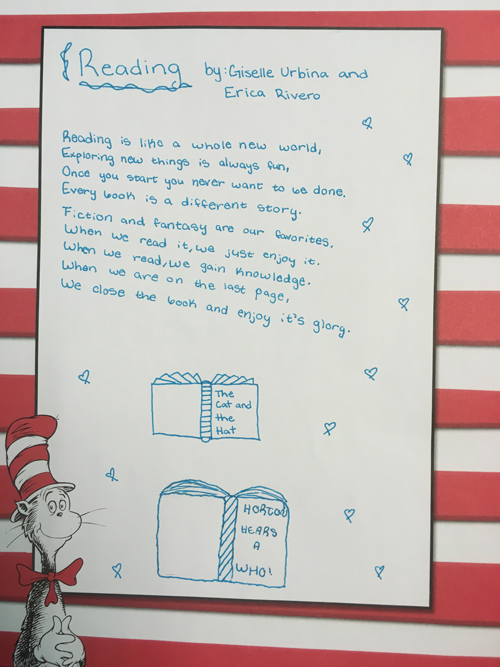 Reading by: Giselle Urbina and
Erica Rivero
Reading is like a whole new world,
Exploring new things is always fun,
Once you start you never want to be done.
Every book is a different story.
Fiction and fantasy are our favorites.
When we read it, we just enjoy it.
When we read, we gain knowledge.
When we are on the last page,
We close the book and enjoy it's glory.
The
Cat and
the
Hat
HORTON
HEARS
A
WHO!